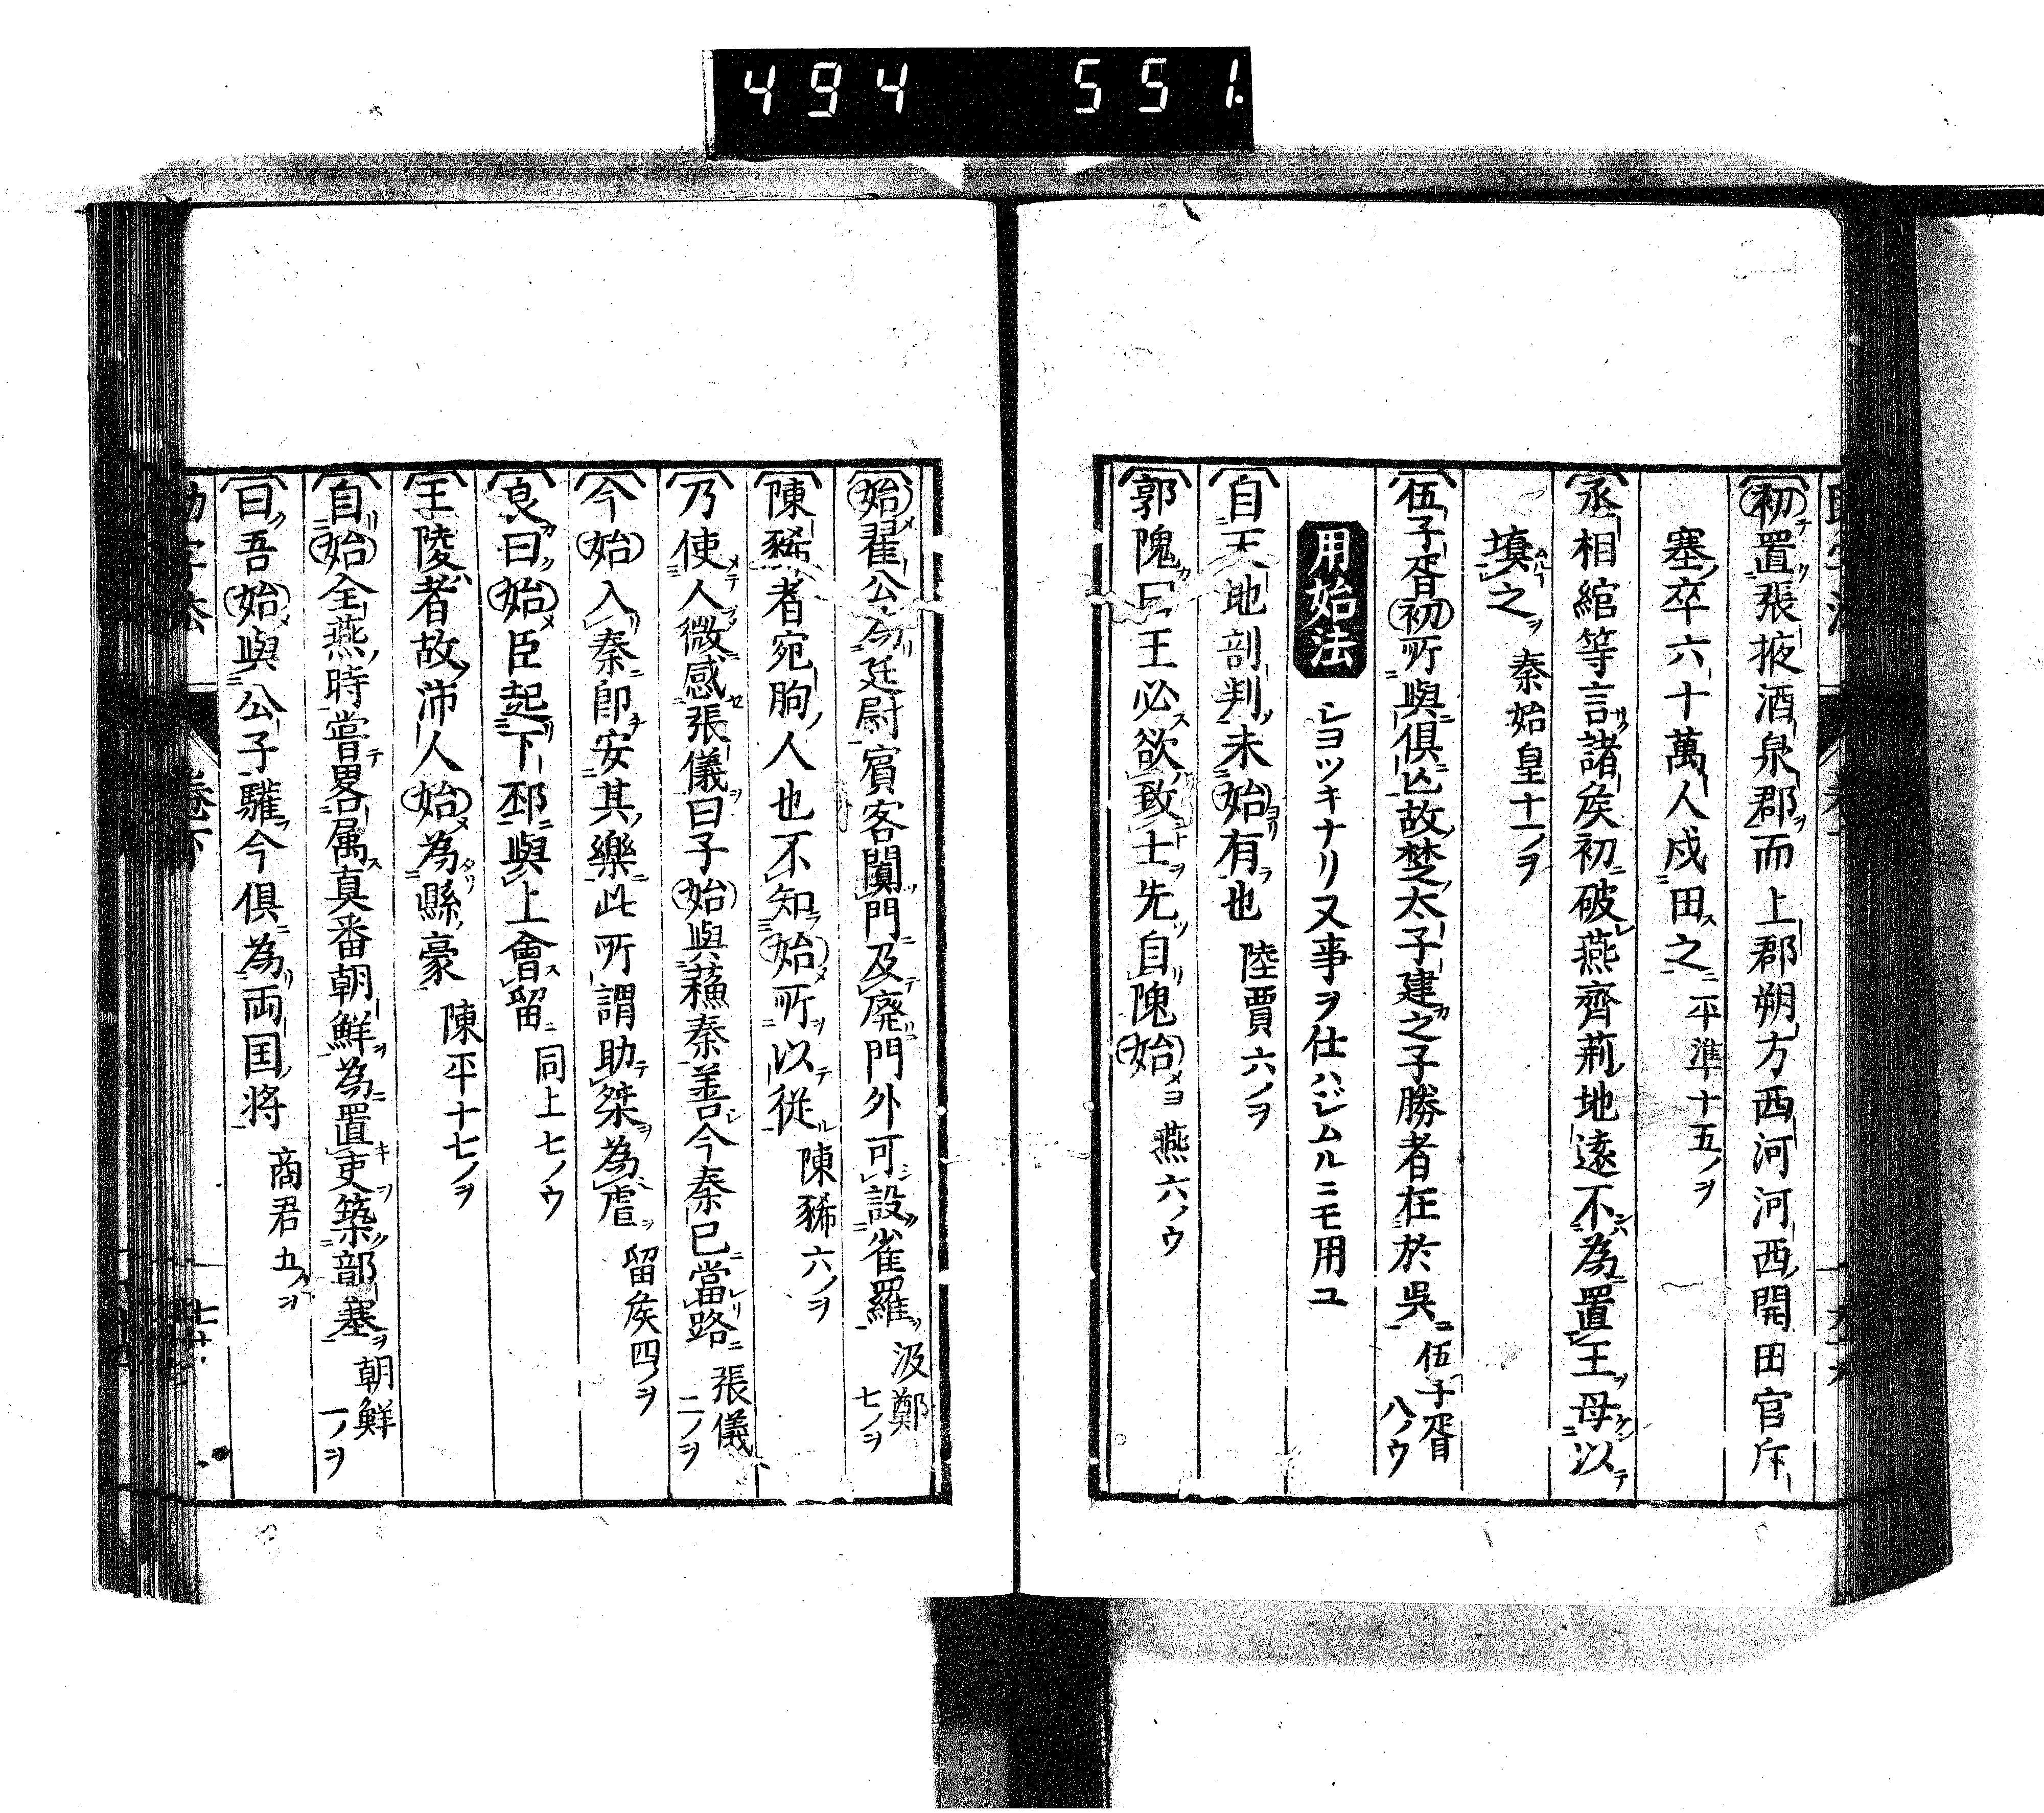 494 551.
初置張掖酒泉郡而上郡朔方西河河西開田官斥
塞卒六十萬人戍田之 平準十五ノヲ
丞相綰等言諸矦初破燕齊荊地遠不為置王母以
塡之 秦始皇十一ノヲ
伍子胥初所與俱亾故楚太子建之子勝者在於吳 伍子胥八ノウ
用始法 レヨツキナリ又事ヲ仕ハジムルニモ用ユ
自天地剖判未始有也 陸賈六ノヲ
郭隗曰王必欲致士先自隗始 燕六ノウ
始翟公今廷尉賔客闐門及廢門外可設雀羅 汲鄭七ノヲ
陳豨者宛朐人也不知始所以従 陳豨六ノヲ
乃使人微感張儀曰子始與蘓秦善今秦已當路 張儀二ノヲ
今始入秦卽安其樂此所謂助桀為虐 留矦四ノヲ
良曰始臣起下邳與上會留 同上七ノウ
王陵者故沛人始為縣豪 陳平十七ノヲ
自始全燕時嘗畧属真番朝鮮為置吏築鄣塞 朝鮮一ノヲ
曰吾始與公子驩今俱為両国将 商君九ノヲ
助字法 卷下